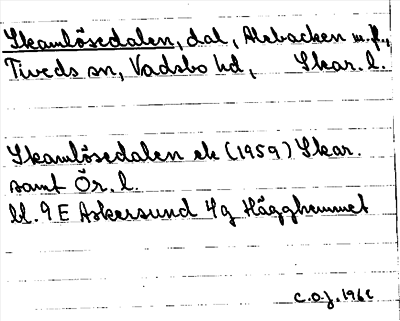 Skamlösedalen, dal, Alsbacken m.fl.,
Tiveds sn, Vadsbo hd, Skar. l.
Skamlösedalen ek (1959) Skar.
samt Ör. l.
bl. 9E Askersund 4g Hägghemmet
C.O.J. 196